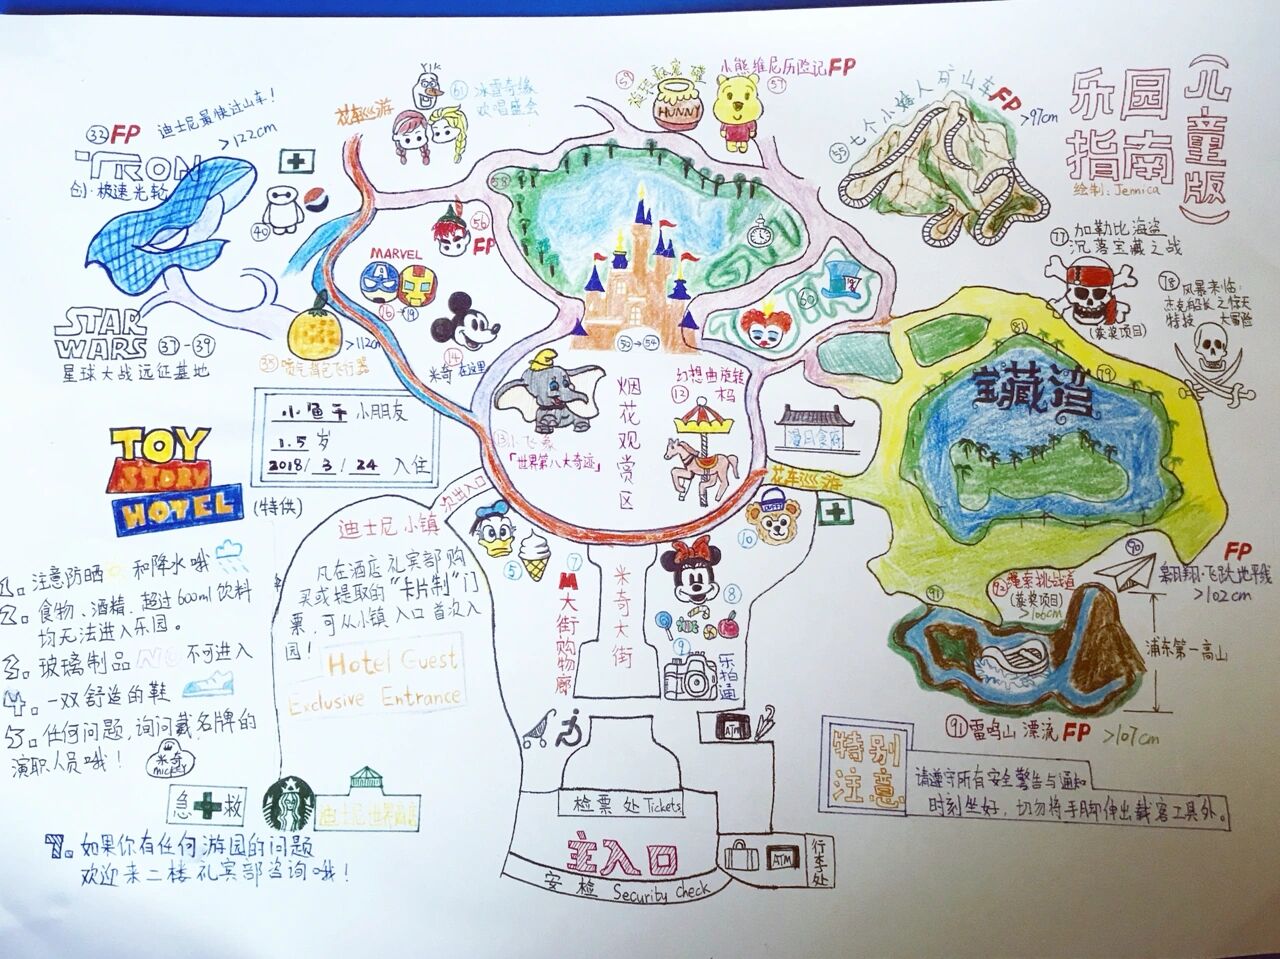 乐园
指南
(儿童版)
绘制:Jennica
32 FP
迪士尼最快过山车!
>122cm
TRON
创·极速光轮
40
花车巡游
61 冰雪奇缘
欢唱盛会
59
HUNNY
小熊维尼历险记 FP
57
七个小矮人矿山车 FP
>97cm
55
58
56
FP
MARVEL
16→19
14
米奇在这里
STAR
WARS
37-39
星球大战远征基地
35 喷气背包飞行器
>112cm
60
53→54
77 加勒比海盗
沉落宝藏之战
(获奖项目)
78 风暴来临:
杰克船长之惊天
特技大冒险
81
79
宝藏湾
小鱼干 小朋友
1.5 岁
2018/3/24 入住
TOY
STORY
HOTEL
(特供)
13 小飞象
「世界第八大奇迹」
烟花观赏区
幻想曲旋转
木马
12
漫月食府
花车巡游
次出入口
迪士尼小镇
凡在酒店礼宾部购
买或提取的"卡片制"门
票,可从小镇入口首次入
园!
Hotel Guest
Exclusive Entrance
5
7
M大街购物廊
米奇大街
10
8
9
乐拍通
ATM
90
FP
翱翔·飞跃地平线
>102cm
92 探索挑战道
(获奖项目)
>106cm
91
浦东第一高山
91 雷鸣山漂流 FP >107cm
1. 注意防晒 和降水哦
2. 食物、酒精、超过600ml饮料
均无法进入乐园。
3. 玻璃制品 NO 不可进入
4. 一双舒适的鞋
5. 任何问题,询问戴名牌的
演职人员哦!
米奇
mickey
急救
迪士尼世界商店
7. 如果你有任何游园的问题
欢迎来二楼礼宾部咨询哦!
检票处 Tickets
主入口
安检 Security check
ATM
行李处
特别
注意
请遵守所有安全警告与通知
时刻坐好,切勿将手脚伸出载客工具外。